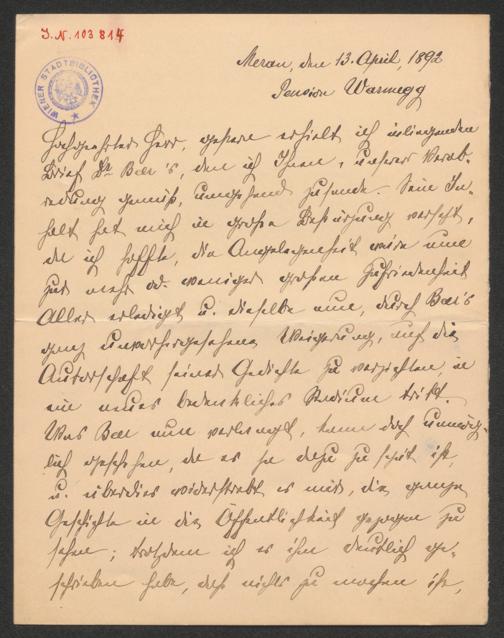 J. N. 103 814
WIENER STADTBIBLIOTHEK
Meran, den 13. April, 1892
Pension Warmegg
Hochgeehrter Herr, gestern erhielt ich inliegenden
Brief Dr Baer's, den ich Ihnen, unserer Verab-
redung gemäß, umgehend zusende. Sein In-
halt hat mich in große Bestürzung versetzt,
da ich hoffte, die Angelegenheit wäre nun
zur mehr od. weniger großen Zufriedenheit
Aller erledigt u. dieselbe nun, durch Baer's
ganz unvorhergesehene Weigerung, auf die
Autorschaft seiner Gedichte zu verzichten, in
ein neues bedenkliches Stadium tritt.
Was Baer nun verlangt, kann doch unmög-
lich geschehen, da es ja dazu zu spät ist,
u. überdies widerstrebt es mir, die ganze
Geschichte in die Öffentlichkeit gezogen zu
sehen; trotzdem ich es ihm deutlich ge-
schrieben habe, daß nichts zu machen ist,